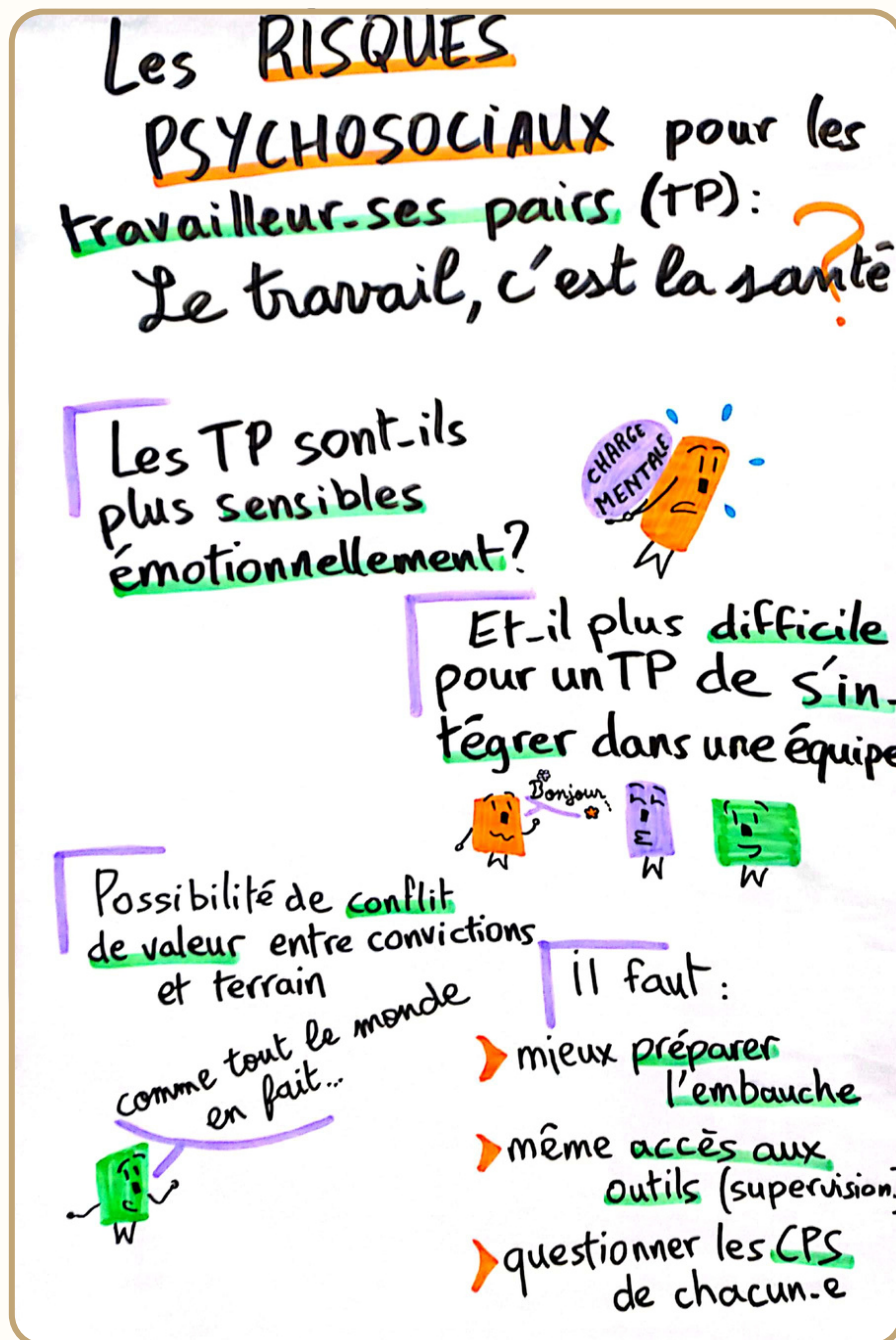 Les RISQUES
PSYCHOSOCIAUX pour les
travailleur.ses pairs (TP):
Le travail, c'est la santé ?
Les TP sont-ils
plus sensibles
émotionnellement?
CHARGE
MENTALE
Et-il plus difficile
pour un TP de s'in-
tégrer dans une équipe
Bonjour
Possibilité de conflit
de valeur entre convictions
et terrain
comme tout le monde
en fait...
il faut :
mieux préparer
l'embauche
même accès aux
outils (supervision)
questionner les CPS
de chacun.e